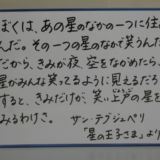 ぼくは、あの星のなかの一つに住
んだ。その一つの星のなかで笑うんだ
だから、きみが夜、空をながめたら、
星がみんな笑ってるように見えるだろう
すると、きみだけが、笑い上戸の星を
みるわけさ。
サン・テグジュペリ
「星の王子さま」より